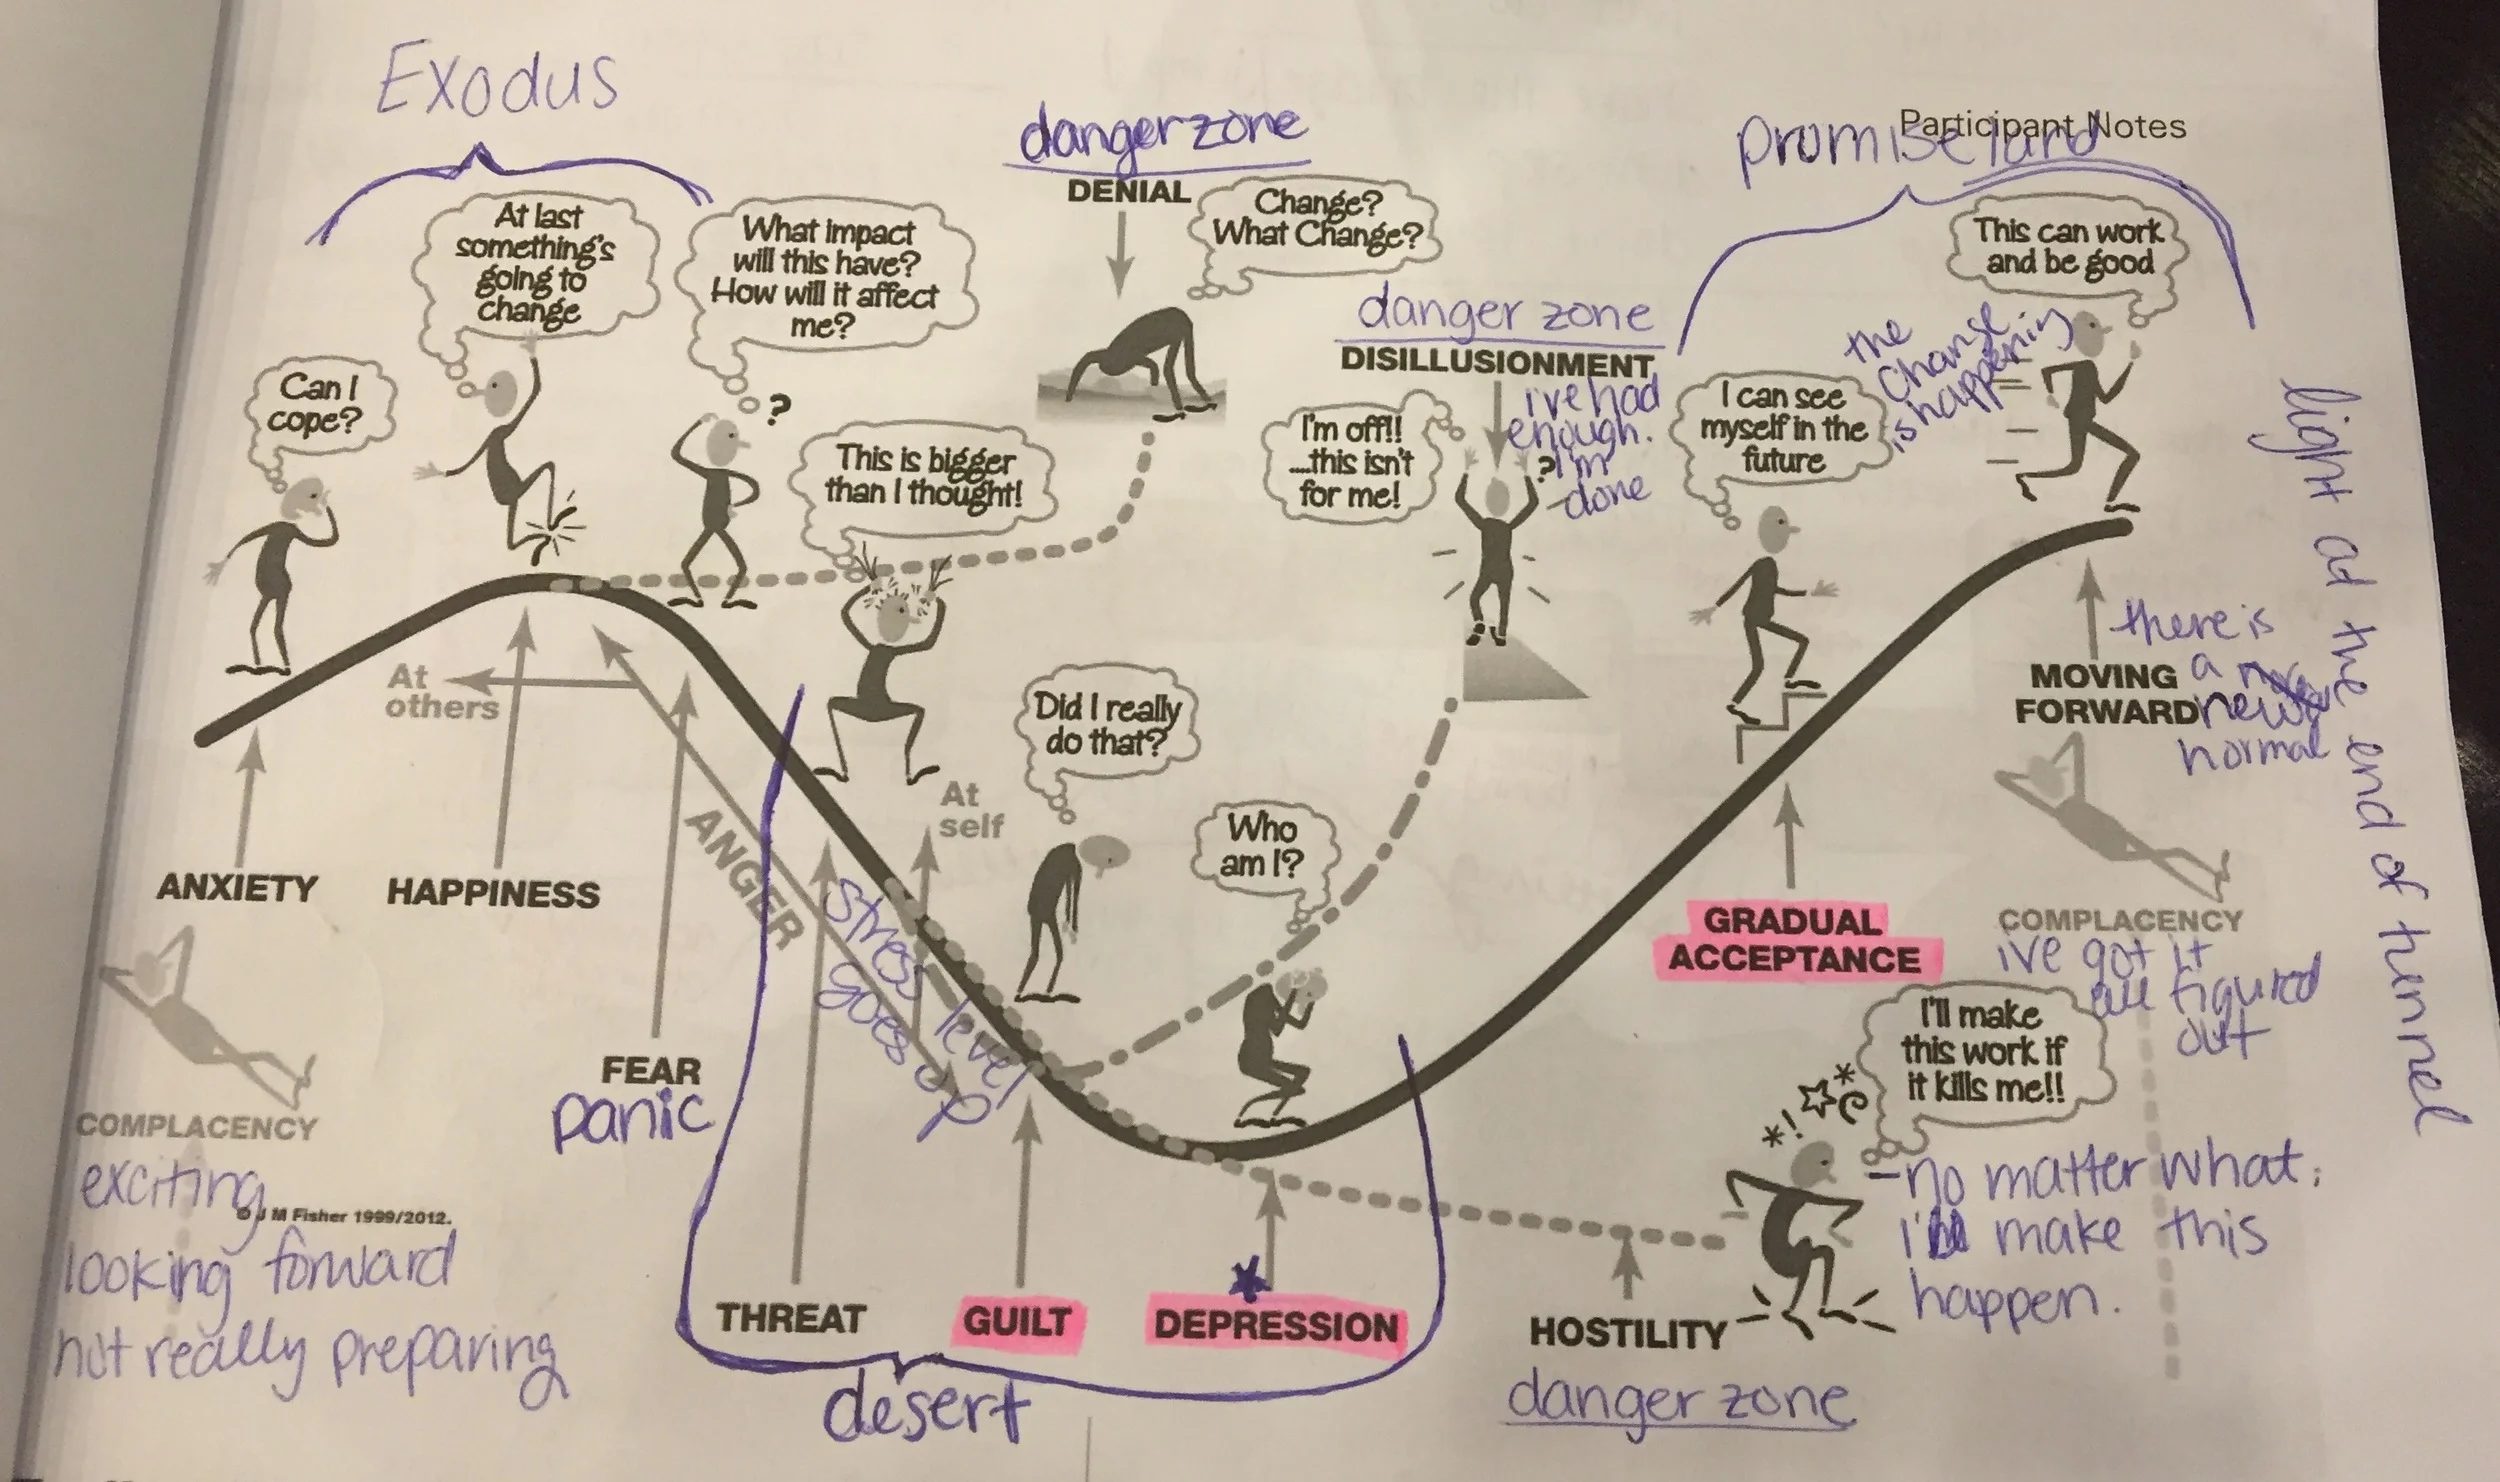 Exodus
Participant Notes
promise land
danger zone
DENIAL
Change?
What Change?
At last
something's
going to
change
What impact
will this have?
How will it affect
me?
?
This can work
and be good
danger zone
DISILLUSIONMENT
i've had
enough.
I'm
done
I'm off!!
....this isn't
for me!
?
I can see
myself in the
future
the
change
is happening
Can I
cope?
This is bigger
than I thought!
light at the end of tunnel
At
others
Did I really
do that?
Who
am I?
there is
a
new
normal
MOVING
FORWARD
ANGER
At
self
ANXIETY
HAPPINESS
FEAR
panic
stress level
goes up
GRADUAL
ACCEPTANCE
COMPLACENCY
i've got it
all figured
out
I'll make
this work if
it kills me!!
*!
*
-no matter what,
i'll make this
happen.
COMPLACENCY
exciting
© J M Fisher 1999/2012.
looking forward
not really preparing
THREAT
GUILT
DEPRESSION
HOSTILITY
desert
danger zone